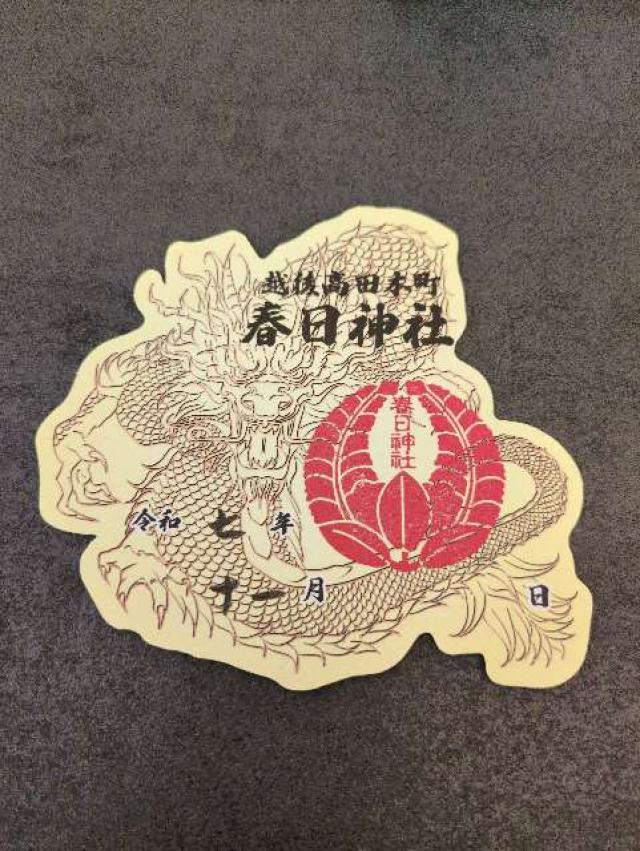 越後高田本町
春日神社
春日神社
令和 七 年
十一 月 日